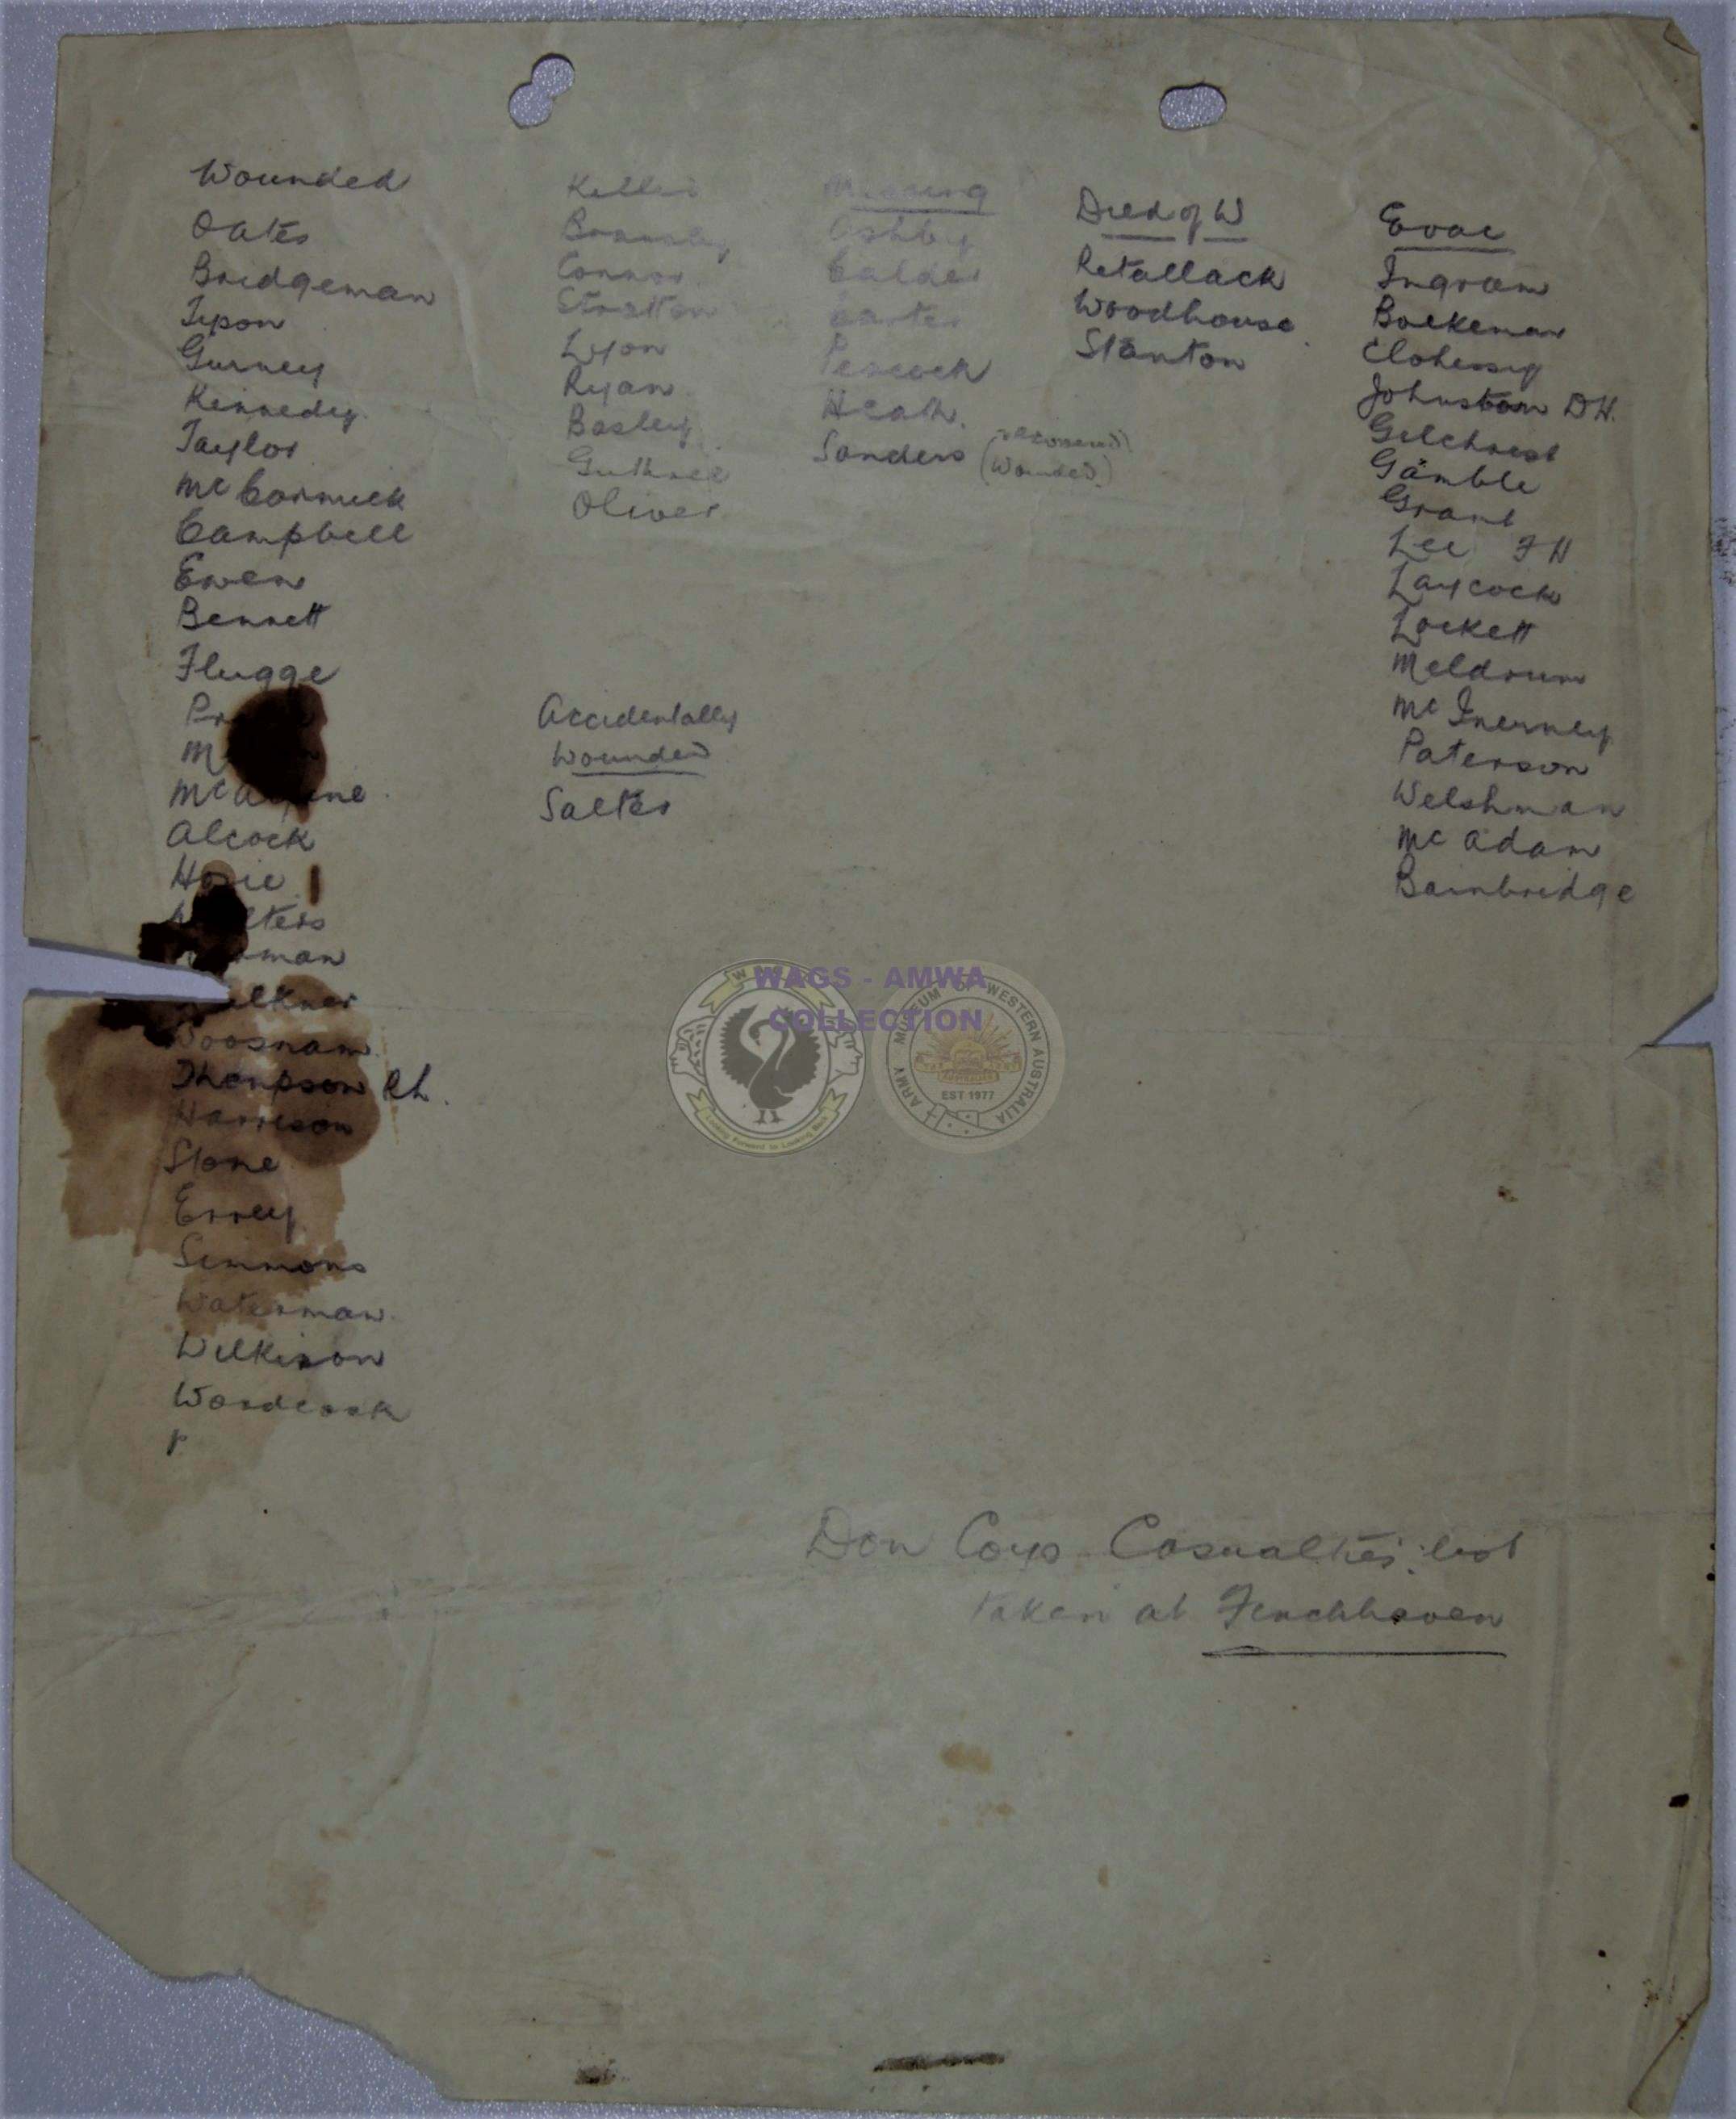 Wounded
Oates
Bridgeman
Tipon
Gurney
Kennedy
Taylor
McCormick
Campbell
Ewen
Bennett
Flugge
Alcock
Woosnam
Thompson RL.
Harrison
Stone
Errey
Simmons
Waterman
Wilkinson
Woodcock
P
Killed
Connor
Stratton
Lyon
Ryan
Basley
Guthrie
Oliver
Accidentally
Wounded
Salter
Missing
Ashby
Calder
Carter
Peacock
Heath.
Sanders (recovered)
(Wounded)
Died of W
Retallack
Woodhouse
Stanton
Evac
Ingram
Boekeman
Clohessy
Johnston DH.
Gilchrist
Gamble
Grant
Lee FH
Laycock
Lockett
Meldrum
McInerney
Paterson
Welshman
McAdam
Bainbridge
WAGS - AMWA
COLLECTION
ARMY MUSEUM OF WESTERN AUSTRALIA
EST 1977
Looking Forward to Looking Back
Don Coys Casualties list
taken at Finchhaven